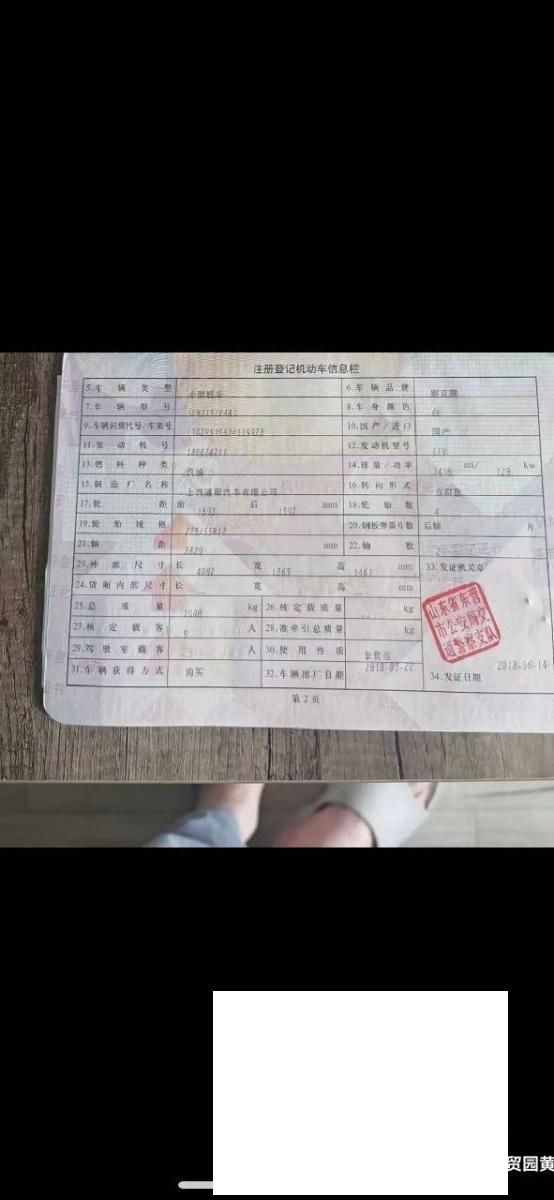 注册登记机动车信息栏
5.车辆类型 小型轿车 6.车辆品牌 别克牌
7.车辆型号 8.车身颜色 白
9.车辆识别代号/车架号 10.国产/进口 国产
11.发动机号 180674211 12.发动机型号
13.燃料种类 汽油 14.排量/功率 ml/ kw
15.制造厂名称 上汽通用汽车有限公司 16.转向形式 方向盘
17.轮距 前 后 1592 mm 18.轮胎数 4
19.轮胎规格 20.钢板弹簧片数 后轴 片
21.轴距 2829 mm 22.轴数
23.外廓尺寸 长 宽 1863 高 1461 mm 33.发证机关章
24.货厢内部尺寸 长 宽 高 mm
25.总质量 kg 26.核定载质量 kg
27.核定载客 5 人 28.准牵引总质量 kg
29.驾驶室载客 人 30.使用性质 非营运
31.车辆获得方式 购买 32.车辆出厂日期 2018-03-22 34.发证日期 2018-06-14
山东省东营
市公安局交
通警察支队
第2页
贸园黄